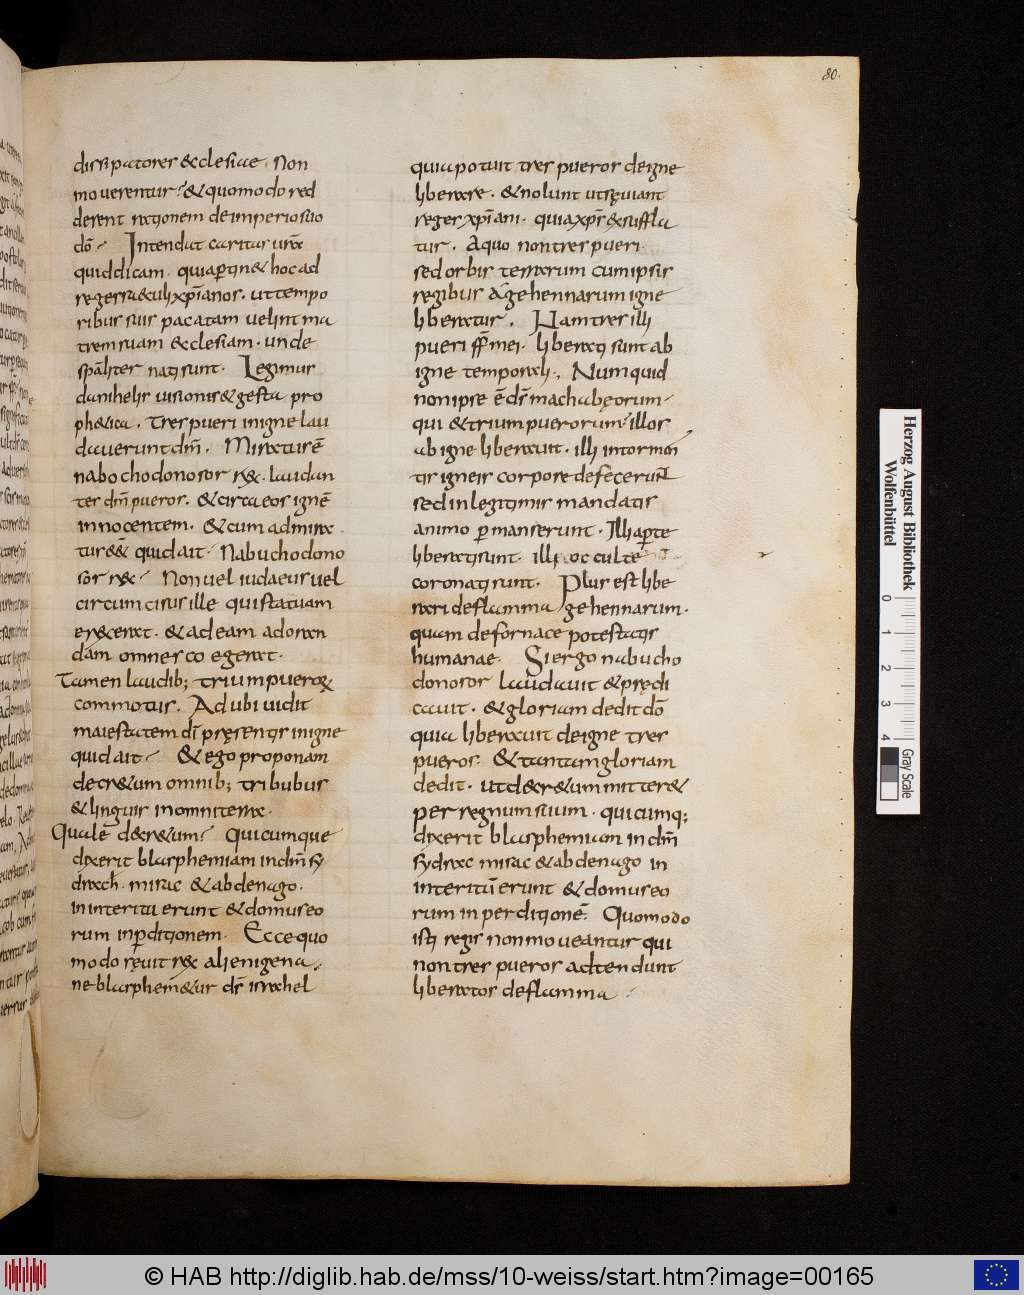 80.
dissipatores &clesiae. Non
moverentur? & quomodo red
derent rationem de imperio suo
dō. Intendat caritas vr̄a
quid dicam. quia pertin& hoc ad
reges saeculi xp̄ianos. ut tempo
ribus suis pacatam velint ma
trem suam &clesiam. unde
sp̄aliter nati sunt. Legimus
danihelis visionis & gesta pro
ph&ica. tres pueri in igne lau
daverunt dn̄m. Miratus ē
nabochodonosor rex. laudan
tes dn̄m pueros. & circa eos ignē
innocentem. & cum admira
quid ait. Nabuchodono
sor rex. Non vel iudaeus vel
circumcisus ille qui statuam
erexerat. & ad eam adoran
dam omnes coegerat.
Tamen laudib; trium pueroꝝ
commotus. Ad ubi vidit
maiestatem dī pręsentis in igne
quid ait. & ego proponam
decr&um omnib; tribubus
& linguis in omni terra.
Quale decr&um? Quicumque
dixerit blasphemiam in dn̄m sy
drach. misac & abdenago.
in interitu erunt & domus eo
rum in ꝑditionem. Ecce quo
modo sęvit rex alienigena,
ne blasphem&ur ds̄ israhel
quia potuit tres pueros de igne
liberare. & nolunt ut sęviant
reges xp̄iani. quia xp̄s exsuffla
tur. A quo non tres pueri
sed orbis terrarum cum ipsis
regibus a gehennarum igne
liberatur. Nam tres illi
pueri ffr̄ mei. liberati sunt ab
igne temporali. Numquid
non ipse ē ds̄ machabęorum
qui & trium puerorum? illos
ab igne liberavit. illi in tormen
tis igneis corpore defecerunt
sed in legitimis mandatis
animo ꝑmanserunt. Illi aꝑte
liberati sunt. illi occulte
coronati sunt. Plus est libe
rari de flamma gehennarum.
quam de fornace potestatis
humanae. Si ergo nabucho
donosor laudavit & prędi
cavit. & gloriam dedit dō
quia liberavit de igne tres
pueros. & tantam gloriam
dedit. ut decr&um mitter&
per regnum suum. quicumq;
dixerit blasphemiam in dn̄m
sydrac misac & abdenago in
interitū erunt & domus eo
rum in perditionē. Quomodo
isti regis non moveantur qui
non tres pueros adtendunt
liberatos de flamma
Herzog August Bibliothek
Wolfenbüttel
0 1 2 3 4
Gray Scale
© HAB http://diglib.hab.de/mss/10-weiss/start.htm?image=00165